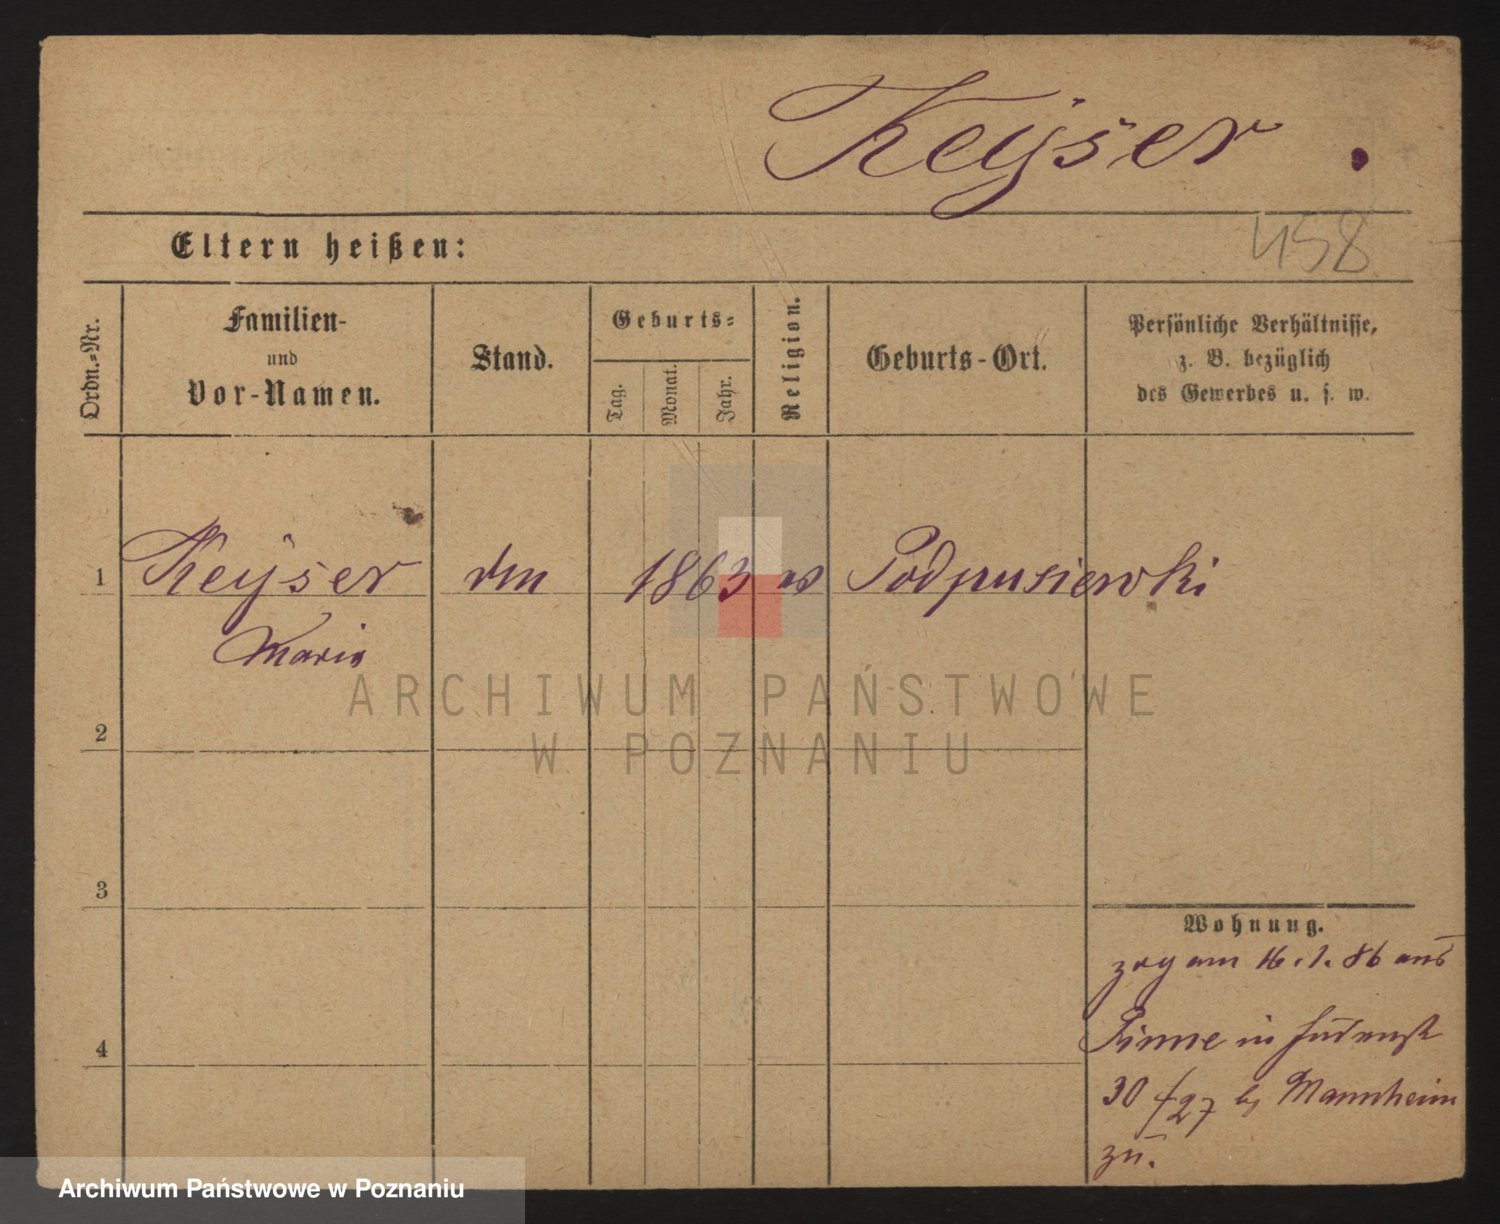 Keÿser.
458
Eltern heißen:
Ordn.=Nr.
Familien-
und
Vor-Namen.
Stand.
Geburts=
Tag.
Monat.
Jahr.
Religion.
Geburts-Ort.
Persönliche Verhältnisse,
z. B. bezüglich
des Gewerbes u. s. w.
1 Keÿser 1863 Podpusiewki
Marie
2
3
4
Wohnung.
zog am 16.1.86 aus
Pinne in Judenstr
30/27 by Mannheim
zu.
ARCHIWUM PAŃSTWOWE
W POZNANIU
Archiwum Państwowe w Poznaniu